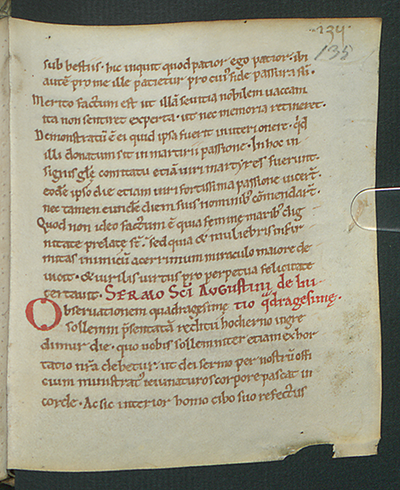 234
135
sub bestiis. hic inquit quod patior ego patior. ibi
autē pro me ille patietur pro cui' fide passura sū.
Merito factum est ut illā seuitia nobilem uaccam
ita non sentiret experta. ut nec memoria retineret.
Demonstratū ē ei quid ipsa fuerit
illi donatum sit in martirii passione. In hoc in
signis glē comitatu etiā uiri martyres fuerunt.
eodē ipso die etiam uiri fortissima passione uicert.
nec tamen eundē diem suis nominib; cōmendart.
Quod non ideo factum ē quia femine maribus dig
nitate prelate st. sed quia & muliebris infir
mitas inimicū acerrimum miraculo maiore de
uicit. & uirilis uirtus pro perpetua felicitate
certauit. Sermo Scī Augustini de ini
Obseruationem quadragesime tio q̄dragesime.
sollemni p̄sentatā reditu hodierno ingre
dimur die. quo uobis sollemniter etiam exhor
tatio nr̄a debetur. ut dei sermo per nostrū offi
cium ministratus ieiunaturos corpore pascat in
corde. Ac sic interior homo cibo suo refectus